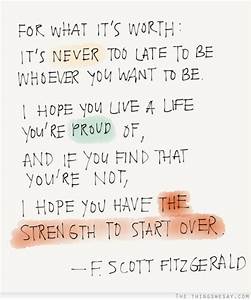 FOR WHAT IT'S WORTH:
IT'S NEVER TOO LATE TO BE
WHOEVER YOU WANT TO BE.
I HOPE YOU LIVE A LIFE
YOU'RE PROUD OF,
AND IF YOU FIND THAT
YOU'RE NOT,
I HOPE YOU HAVE THE
STRENGTH TO START OVER.
—F. SCOTT FITZGERALD
THETHINGSWESAY.COM